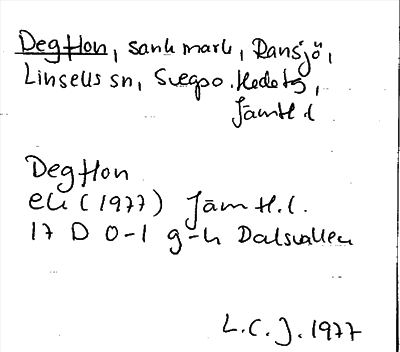 Degtlon, sank mark, Ransjö,
Linsells sn, Svegpo. Hedetg,
Jämtl l
Degtlon
ek (1977) Jämtl.l.
17 D 0-1 g-h Dalsvallen
L.C.J. 1977